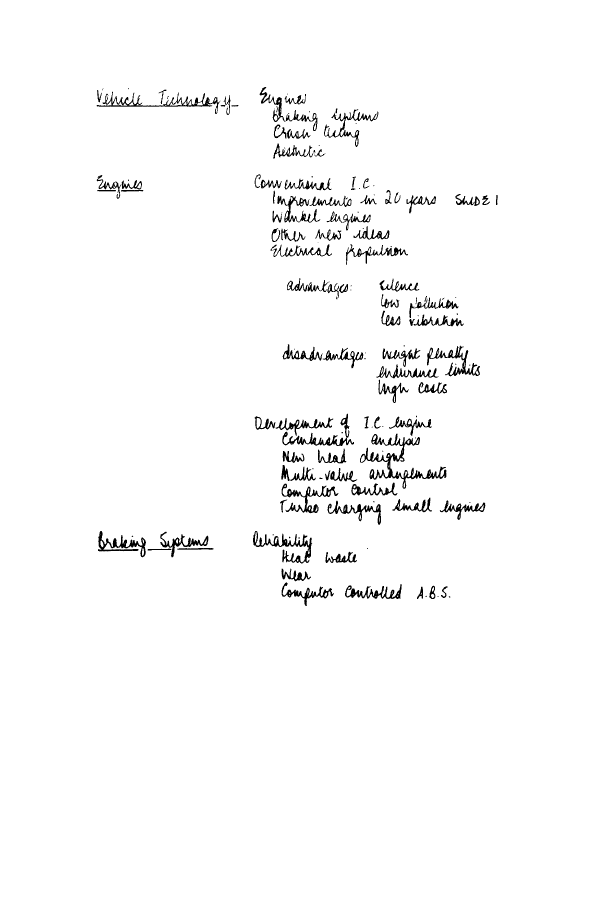 Vehicle Technology Engines
Braking Systems
Crash testing
Aesthetic
Engines Conventional I.C.
Improvements in 20 years SLIDE 1
Wankel engines
Other new ideas
Electrical propulsion
advantages: silence
low pollution
less vibration
disadvantages: weight penalty
endurance limits
high costs
Development of I.C. engine
Combustion analysis
New head designs
Multi-valve arrangements
Computor control
Turbo charging small engines
Braking Systems Reliability
Heat waste
Wear
Computor controlled A.B.S.